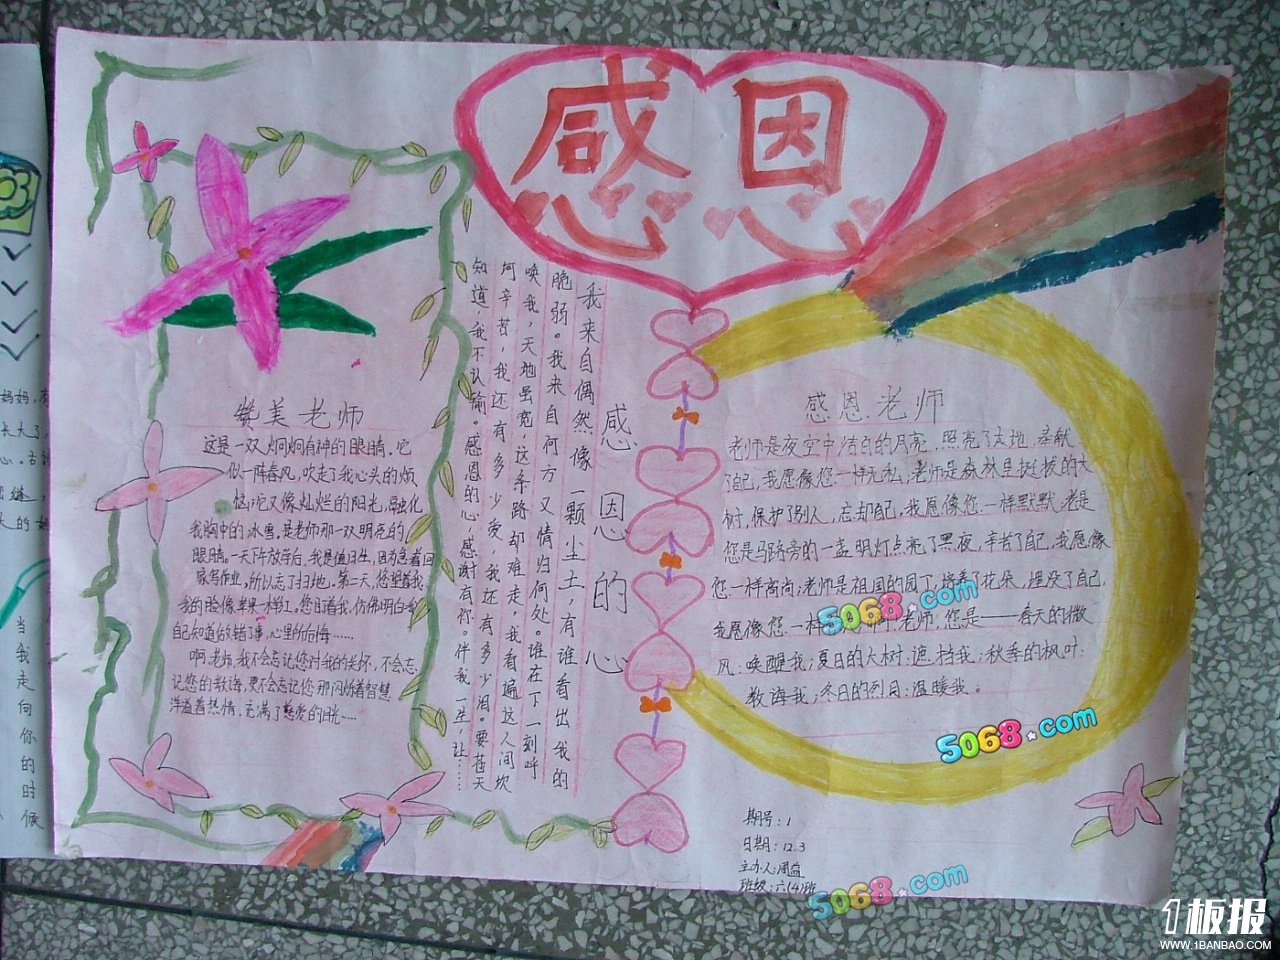 感恩
赞美老师
这是一双炯炯有神的眼睛。它
似一阵春风,吹走了我心头的烦
恼;它又像灿烂的阳光,融化
我胸中的冰雪。是老师那一双明亮的
眼睛。一天下午放学后,我是值日生,因为急着回
家写作业,所以忘了扫地。第二天,您望着我
我的脸像苹果一样红,您目着我,仿佛明白我
自己知道做错了事,心里的后悔……
啊,老师,我不会忘记您对我的关怀,不会忘
记您的教诲,更不会忘记您那闪烁着智慧
洋溢着热情、充满了慈爱的目光……
感恩的心
我来自偶然像一颗尘土,有谁看出我的
脆弱。我来自何方又情归何处。谁在下一刻呼
唤我,天地虽宽,这条路却难走,我看遍这人间坎
坷辛苦,我还有多少爱,我还有多少泪。要苍天
知道,我不认输。感恩的心感谢有你。伴我一生,让……
感恩老师
老师是夜空中洁白的月亮,照亮了大地,奉献
了自己,我愿像您一样无私;老师是森林里挺拔的大
树,保护了别人,忘却自己,我愿像您一样默默;老是
您是马路旁的一盏明灯点亮了黑夜,辛苦了自己,我愿像
您一样高尚;老师是祖国的园丁,培养了花朵,埋没了自己,
我愿像您一样 老师,您是——春天的微
风:唤醒我;夏日的大树:遮挡我;秋季的枫叶:
教诲我;冬日的烈日:温暖我。
期号:1
日期:12.3
主办人:周益
班级:六(4)班
妈妈,有
长大了,
心。古
缝,
当我走向你的时候
5068.com
5068.com
5068.com
1板报
WWW.1BANBAO.COM